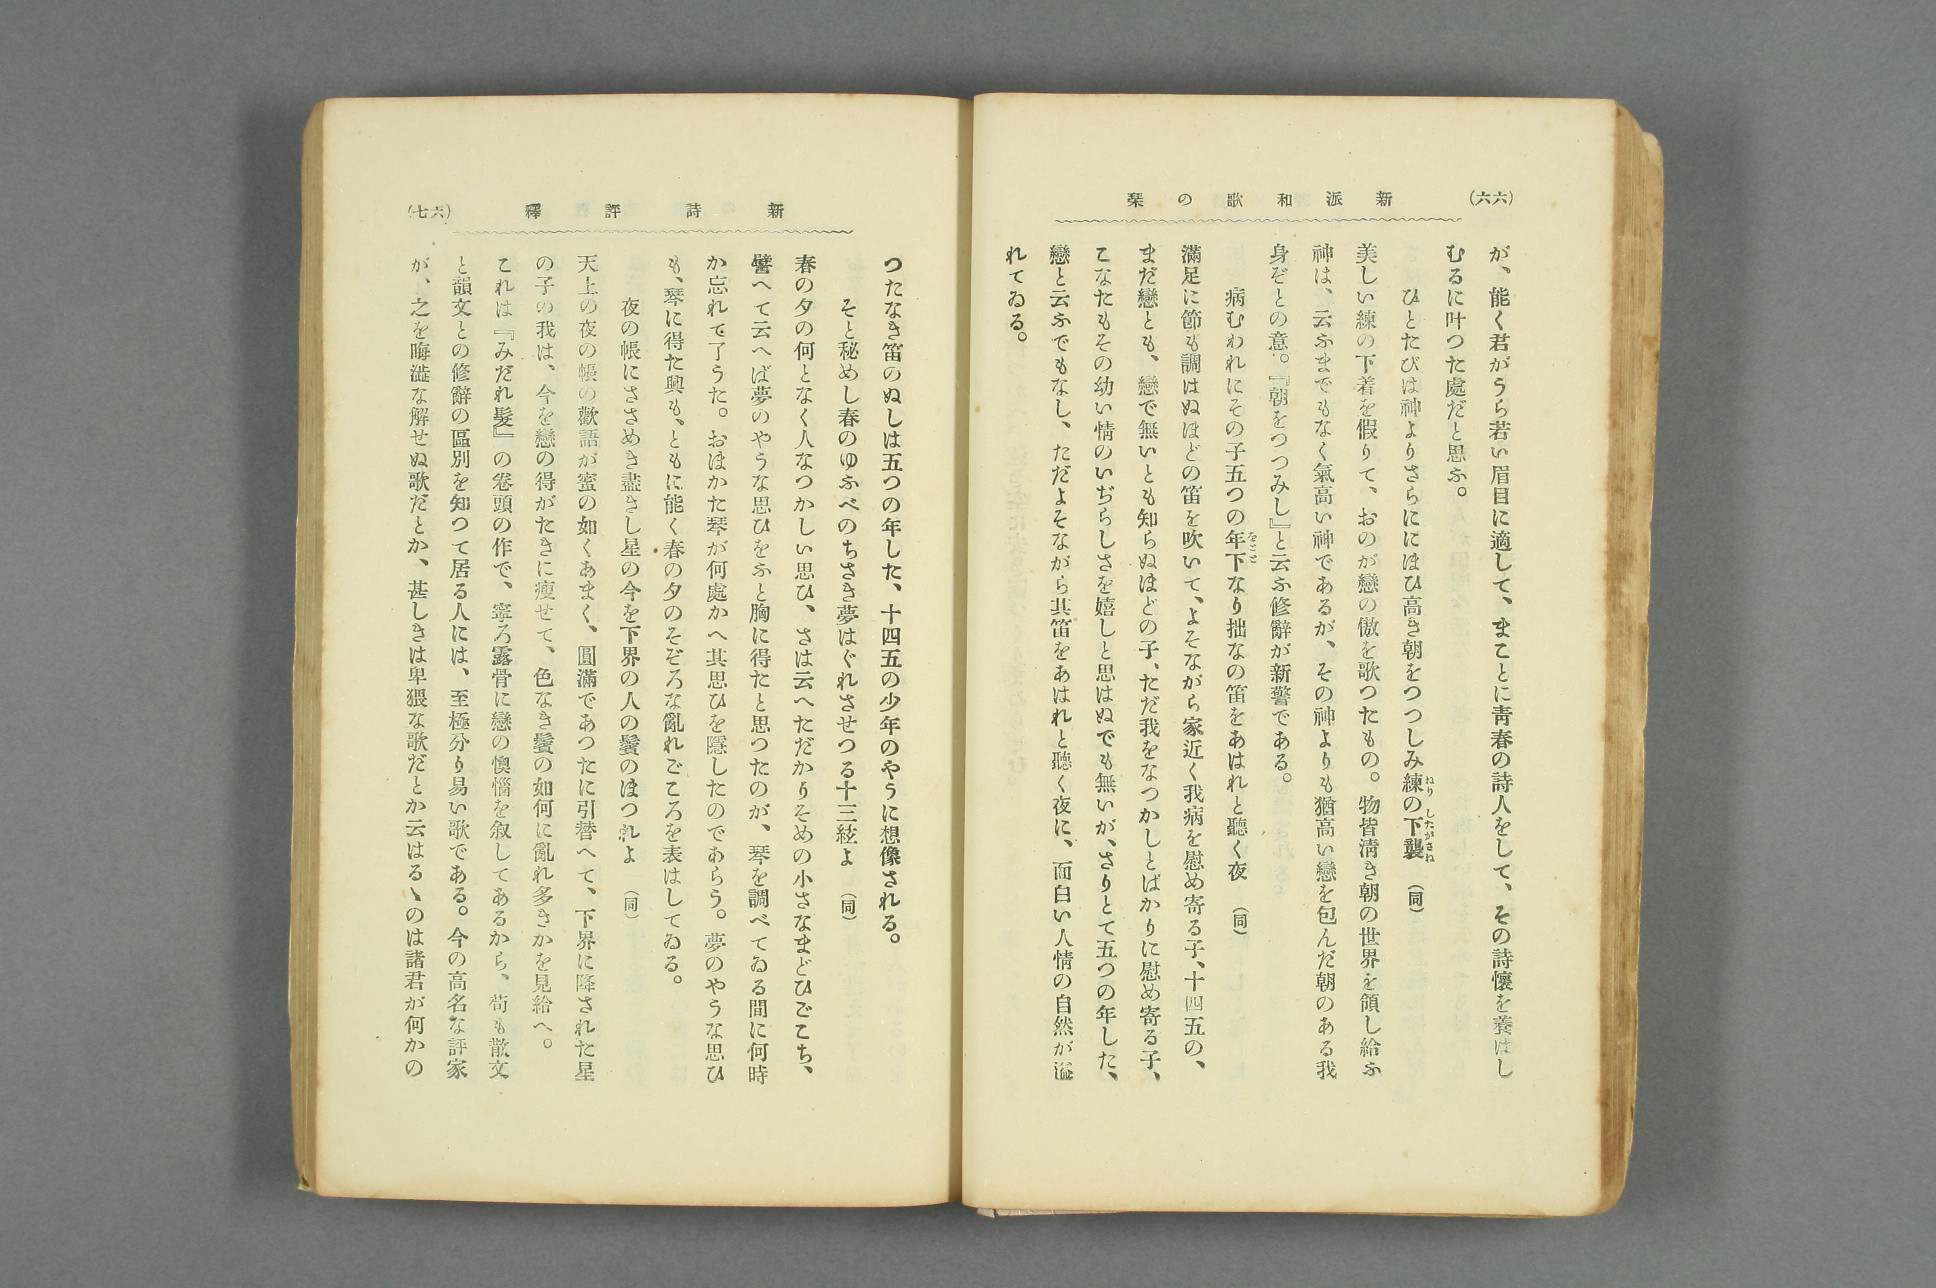 (六六)
新派和歌の栞
が、能く君がうら若い眉目に適して、まことに靑春の詩人をして、その詩懷を養はし
むるに叶つた處だと思ふ。
ひとたびは神よりさらににほひ高き朝をつつしみ練の下襲 (同)
ねり したがさね
美しい練の下着を假りて、おのが戀の傲を歌つたもの。物皆淸き朝の世界を領し給ふ
神は、云ふまでもなく氣高い神であるが、その神よりも猶高い戀を包んだ朝のある我
身ぞとの意。『朝をつつみし』と云ふ修辭が新警である。
病むわれにその子五つの年下なり拙なの笛をあはれと聽く夜 (同)
をとご
滿足に節も調はぬほどの笛を吹いて、よそながら家近く我病を慰め寄る子、十四五の、
まだ戀とも、戀で無いとも知らぬほどの子、ただ我をなつかしとばかりに慰め寄る子、
こなたもその幼い情のいぢらしさを嬉しと思はぬでも無いが、さりとて五つの年した、
戀と云ふでもなし、ただよそながら其笛をあはれと聽く夜に、面白い人情の自然が溢
れてゐる。
新詩評釋
(六七)
つたなき笛のぬしは五つの年した、十四五の少年のやうに想像される。
そと秘めし春のゆふべのちさき夢はぐれさせつる十三絃よ (同)
春の夕の何となく人なつかしい思ひ、さは云へただかりそめの小さなまどひごこち、
譬へて云へば夢のやうな思ひをふと胸に得たと思つたのが、琴を調べてゐる間に何時
か忘れて了うた。おほかた琴が何處かへ其思ひを隱したのであらう。夢のやうな思ひ
も、琴に得た興も、ともに能く春の夕のそぞろな亂れごころを表はしてゐる。
夜の帳にささめき盡きし星の今を下界の人の鬢のほつれよ (同)
天上の夜の帳の歡語が蜜の如くあまく、圓滿であつたに引替へて、下界に降された星
の子の我は、今を戀の得がたきに瘦せて、色なき鬢の如何に亂れ多きかを見給へ。
これは『みだれ髮』の卷頭の作で、寧ろ露骨に戀の懊惱を叙してあるから、苟も散文
と韻文との修辭の區別を知つて居る人には、至極分り易い歌である。今の高名な評家
が、之を晦澁な解せぬ歌だとか、甚しきは卑猥な歌だとか云はるゝのは諸君が何かの